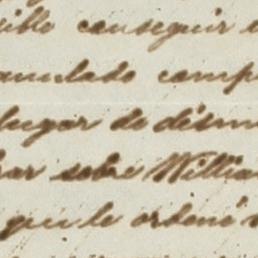 ible conseguir
anulado comp
lugar de dism
har sobre Willia
que le ordené